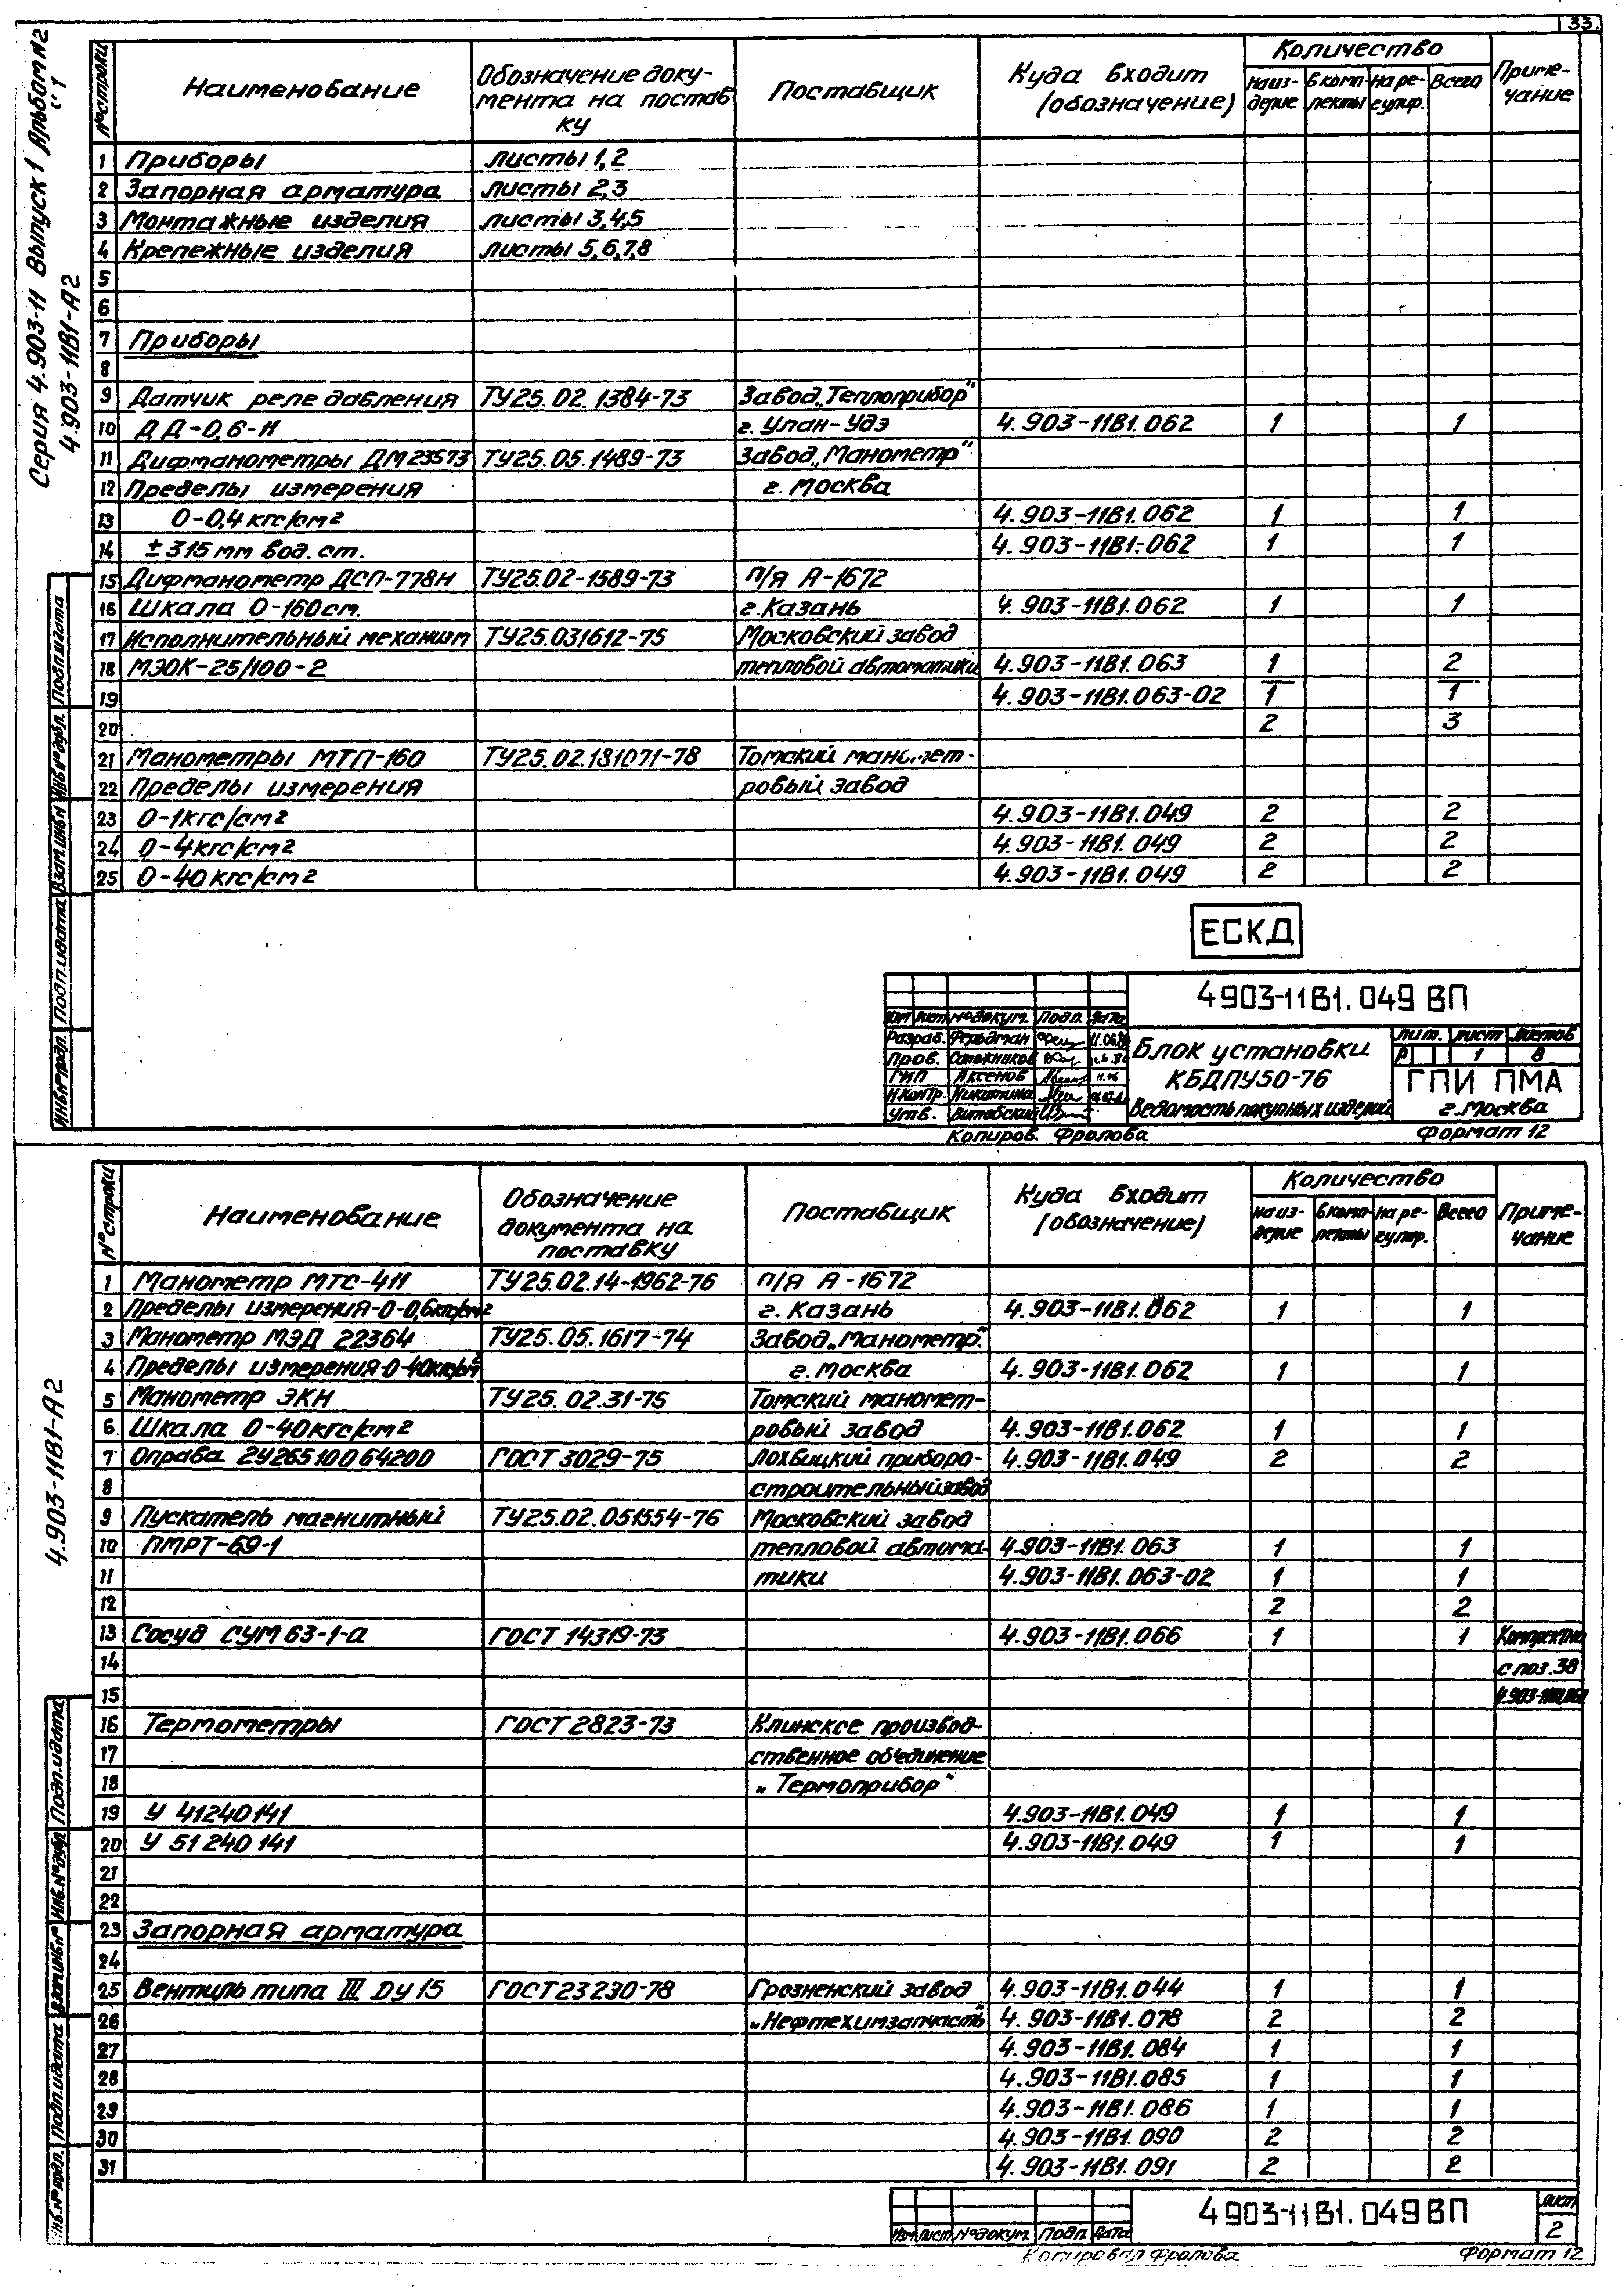 33.
Серия 4.903-11 Выпуск 1 Альбом №2
ч 1
4.903-11В1-А2
№ строки
Наименование
Обозначение доку-
мента на постав
ку
Поставщик
Куда входит
(обозначение)
Количество
на из-
делие
в комп-
лекты
на ре-
гулир.
Всего
Приме-
чание
1 Приборы листы 1,2
2 Запорная арматура листы 2,3
3 Монтажные изделия листы 3,4,5
4 Крепежные изделия листы 5,6,7,8
5
6
7 Приборы
8
9 Датчик реле давления ТУ25.02.1384-73 Завод „Теплоприбор"
10 ДД-0,6-11 г. Улан-Удэ 4.903-11В1.062 1 1
11 Дифманометры ДМ 23573 ТУ25.05.1489-73 Завод „Манометр"
12 Пределы измерения г. Москва
13 0-0,4 кгс/см2 4.903-11В1.062 1 1
14 ±315 мм вод. ст. 4.903-11В1.062 1 1
15 Дифманометр ДСП-778Н ТУ25.02-1589-73 п/я А-1672
16 Шкала 0-160 см. г. Казань 4.903-11В1.062 1 1
17 Исполнительный механизм ТУ25.031612-75 Московский завод
18 МЭОК-25/100-2 тепловой автоматики 4.903-11В1.063 1 2
19 4.903-11В1.063-02 1 1
20 2 3
21 Манометры МТП-160 ТУ25.02.181071-78 Томский манomet-
22 Пределы измерения ровый завод
23 0-1кгс/см2 4.903-11В1.049 2 2
24 0-4кгс/см2 4.903-11В1.049 2 2
25 0-40кгс/см2 4.903-11В1.049 2 2
ЕСКД
4903-11В1.049 ВП
Изм Лист № докум. Подп. Дата
Разраб. Фельдман
Пров. Сапожников
ГИП Аксенов 11.06
Н.контр. Никитина
Утв. Витебский
Блок установки
КБДПУ50-76
Ведомость покупных изделий
Лит. Лист Листов
Р 1 8
ГПИ ПМА
г. Москва
Копиров. Фролова Формат 12
Инв.№ подл. Подп. и дата Взам. инв.№ Инв.№ дубл. Подп. и дата
4.903-11В1-А2
№ строки
Наименование
Обозначение
документа на
поставку
Поставщик
Куда входит
(обозначение)
Количество
на из-
делие
в комп-
лекты
на ре-
гулир.
Всего
Приме-
чание
1 Манометр МТС-411 ТУ25.02.14-1962-76 п/я А-1672
2 Пределы измерения-0-0,6кгс/см2 г. Казань 4.903-11В1.062 1 1
3 Манометр МЭД 22364 ТУ25.05.1617-74 Завод „Манометр"
4 Пределы измерения-0-40кгс/см2 г. Москва 4.903-11В1.062 1 1
5 Манометр ЭКН ТУ25.02.31-75 Томский маномет-
6 Шкала 0-40кгс/см2 ровый завод 4.903-11В1.062 1 1
7 Оправа 2У26510064200 ГОСТ 3029-75 Лохвицкий приборо- 4.903-11В1.049 2 2
8 строительный завод
9 Пускатель магнитный ТУ25.02.051554-76 Московский завод
10 ПМРТ-69-1 тепловой автома- 4.903-11В1.063 1 1
11 тики 4.903-11В1.063-02 1 1
12 2 2
13 Сосуд СУМ 63-1-а ГОСТ 14319-73 4.903-11В1.066 1 1 Комплектно
14 с поз. 38
15 4.903-11В1.062
16 Термометры ГОСТ 2823-73 Клинское производ-
17 ственное объединение
18 „Термоприбор"
19 У 41240141 4.903-11В1.049 1 1
20 У 51240141 4.903-11В1.049 1 1
21
22
23 Запорная арматура
24
25 Вентиль типа III Ду 15 ГОСТ 23230-78 Грозненский завод 4.903-11В1.044 1 1
26 „Нефтехимзапчасть" 4.903-11В1.078 2 2
27 4.903-11В1.084 1 1
28 4.903-11В1.085 1 1
29 4.903-11В1.086 1 1
30 4.903-11В1.090 2 2
31 4.903-11В1.091 2 2
Инв.№ подл. Подп. и дата Взам. инв.№ Инв.№ дубл. Подп. и дата
Изм Лист № докум. Подп. Дата
4903-11В1.049ВП
Лист
2
Копировал Фролова Формат 12